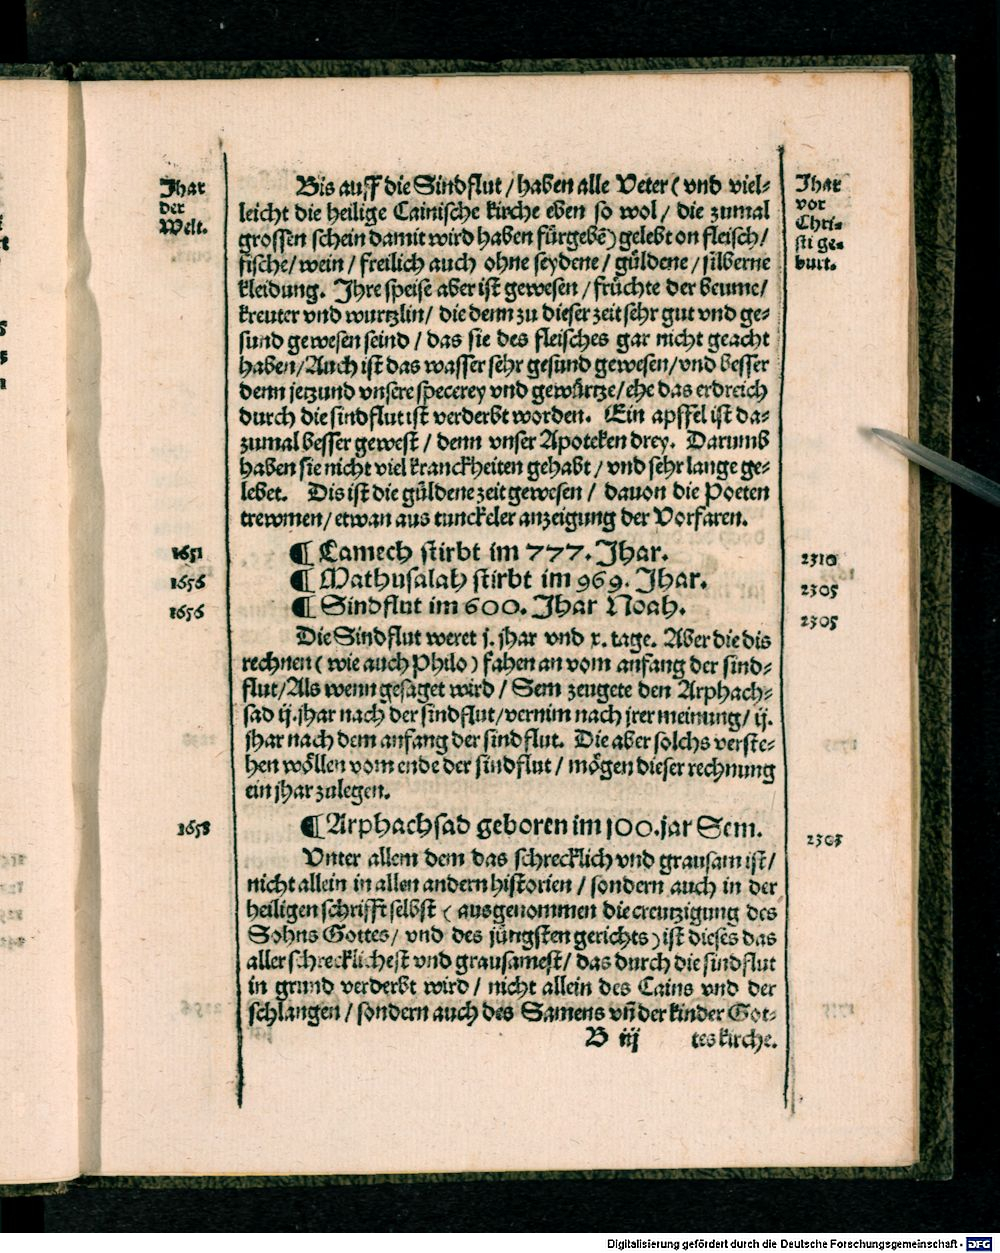 Jhar
der
Welt.
Jhar
vor
Chri-
sti ge-
burt.
Bis auff die Sindflut / haben alle Veter ( vnd viel-
leicht die heilige Cainische kirche eben so wol / die zumal
grossen schein damit wird haben fürgebē) gelebt on fleisch /
fische / wein / freilich auch ohne seydene / güldene / silberne
kleidung. Jhre speise aber ist gewesen / früchte der beume /
kreuter vnd wurtzlin / die denn zu dieser zeit sehr gut vnd ge-
sund gewesen seind / das sie des fleisches gar nicht geacht
haben / Auch ist das wasser sehr gesund gewesen / vnd besser
denn jetzund vnsere specerey vnd gewürtze / ehe das erdreich
durch die sindflut ist verderbt worden. Ein apffel ist da-
zumal besser gewest / denn vnser Apoteken drey. Darumb
haben sie nicht viel kranckheiten gehabt / vnd sehr lange ge-
lebet. Dis ist die güldene zeit gewesen / dauon die Poeten
trewmen / etwan aus tunckeler anzeigung der Vorfaren.
1651 ¶ Lamech stirbt im 777. Jhar. 2310
1656 ¶ Mathusalah stirbt im 969. Jhar. 2305
1656 ¶ Sindflut im 600. Jhar Noah. 2305
Die Sindflut weret j. jhar vnd x. tage. Aber die dis
rechnen ( wie auch Philo ) fahen an vom anfang der sind-
flut / Als wenn gesaget wird / Sem zeugete den Arphach-
sad ij. jhar nach der sindflut / vernim nach jrer meinung / ij.
jhar nach dem anfang der sindflut. Die aber solchs verste-
hen wöllen vom ende der sindflut / mögen dieser rechnung
ein jhar zulegen.
1658 ¶ Arphachsad geboren im 100. jar Sem. 2303
Vnter allem dem das schrecklich vnd grausam ist /
nicht allein in allen andern historien / sondern auch in der
heiligen schrifft selbst ( ausgenommen die creutzigung des
Sohns Gottes / vnd des jüngsten gerichts ) ist dieses das
aller schrecklichest vnd grausamest / das durch die sindflut
in grund verderbt wird / nicht allein des Cains vnd der
schlangen / sondern auch des Samens vñ der kinder Got-
B iij tes kirche.
Digitalisierung gefördert durch die Deutsche Forschungsgemeinschaft - DFG